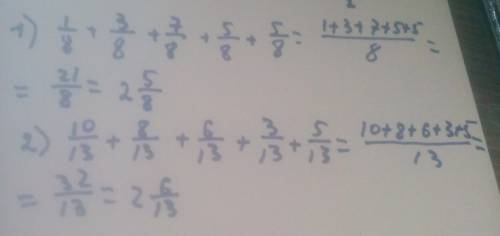 1) 1/8 + 3/8 + 7/8 + 5/8 + 5/8 = (1+3+7+5+5)/8 =
= 21/8 = 2 5/8
2) 10/13 + 8/13 + 6/13 + 3/13 + 5/13 = (10+8+6+3+5)/13 =
= 32/13 = 2 6/13